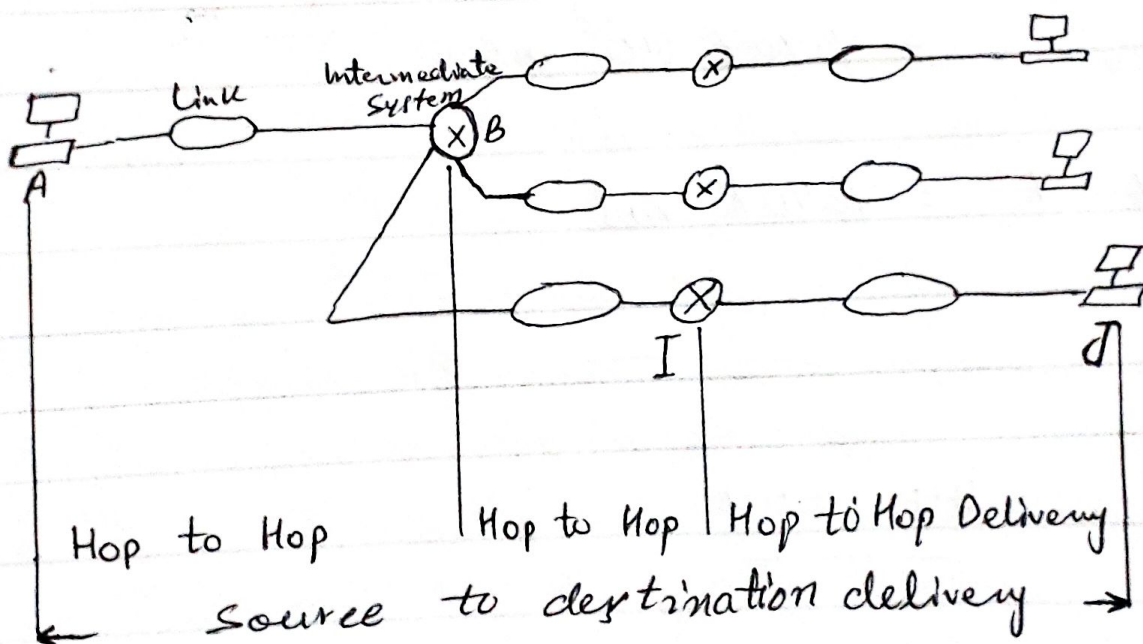 Link
Intermediate
System
A
B
I
d
Hop to Hop
Hop to Hop
Hop to Hop Delivery
Source to destination delivery